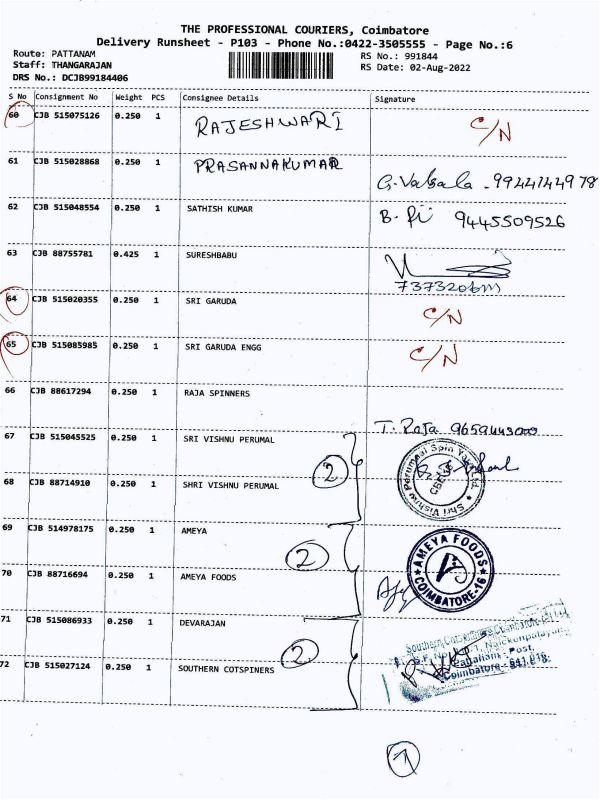 THE PROFESSIONAL COURIERS, Coimbatore
Delivery Runsheet - P103 - Phone No.:0422-3505555 - Page No.:6
Route: PATTANAM
Staff: THANGARAJAN
DRS No.: DCJB99184406
RS No.: 991844
RS Date: 02-Aug-2022
S No Consignment No Weight PCS Consignee Details Signature
60 CJB 515075126 0.250 1 RAJESHWARI C/N
61 CJB 515028868 0.250 1 PRASANNAKUMAR G. Valsala - 9944144978
62 CJB 515048554 0.250 1 SATHISH KUMAR B. 9445509526
63 CJB 88755781 0.425 1 SURESHBABU
64 CJB 515020355 0.250 1 SRI GARUDA C/N
65 CJB 515085985 0.250 1 SRI GARUDA ENGG C/N
66 CJB 88617294 0.250 1 RAJA SPINNERS T. Raja
67 CJB 515045525 0.250 1 SRI VISHNU PERUMAL
2
68 CJB 88714910 0.250 1 SHRI VISHNU PERUMAL
69 CJB 514978175 0.250 1 AMEYA
2
AMEYA FOODS
COIMBATORE-16
70 CJB 88716694 0.250 1 AMEYA FOODS
71 CJB 515086933 0.250 1 DEVARAJAN
2
72 CJB 515027124 0.250 1 SOUTHERN COTSPINERS
Post,
Coimbatore - 641 016.